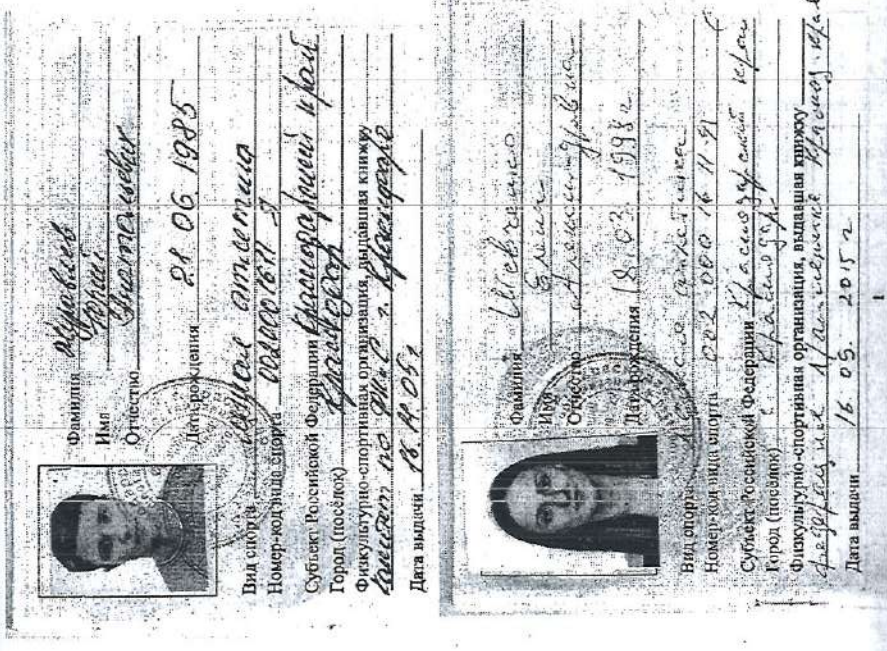 Фамилия Журавлев
Имя Юрий
Отчество Анатольевич
Дата рождения 21 06 1985
Вид спорта атлетика
Номер-код вида спорта
Субъект Российской Федерации Краснодарский край
Город (посёлок) Краснодар
Физкультурно-спортивная организация, выдавшая книжку
комитет по ФКиС г. Краснодара
Дата выдачи
Фамилия Шевченко
Имя Елена
Отчество Александровна
Дата рождения 18.03.1998г
Вид спорта атлетика
Номер-код вида спорта 002 000 16 11 Я
Субъект Российской Федерации Краснодарский край
Город (посёлок) г. Краснодар
Физкультурно-спортивная организация, выдавшая книжку
федерация л/атлетики Краснод. края
Дата выдачи 16. 05. 2015г
1